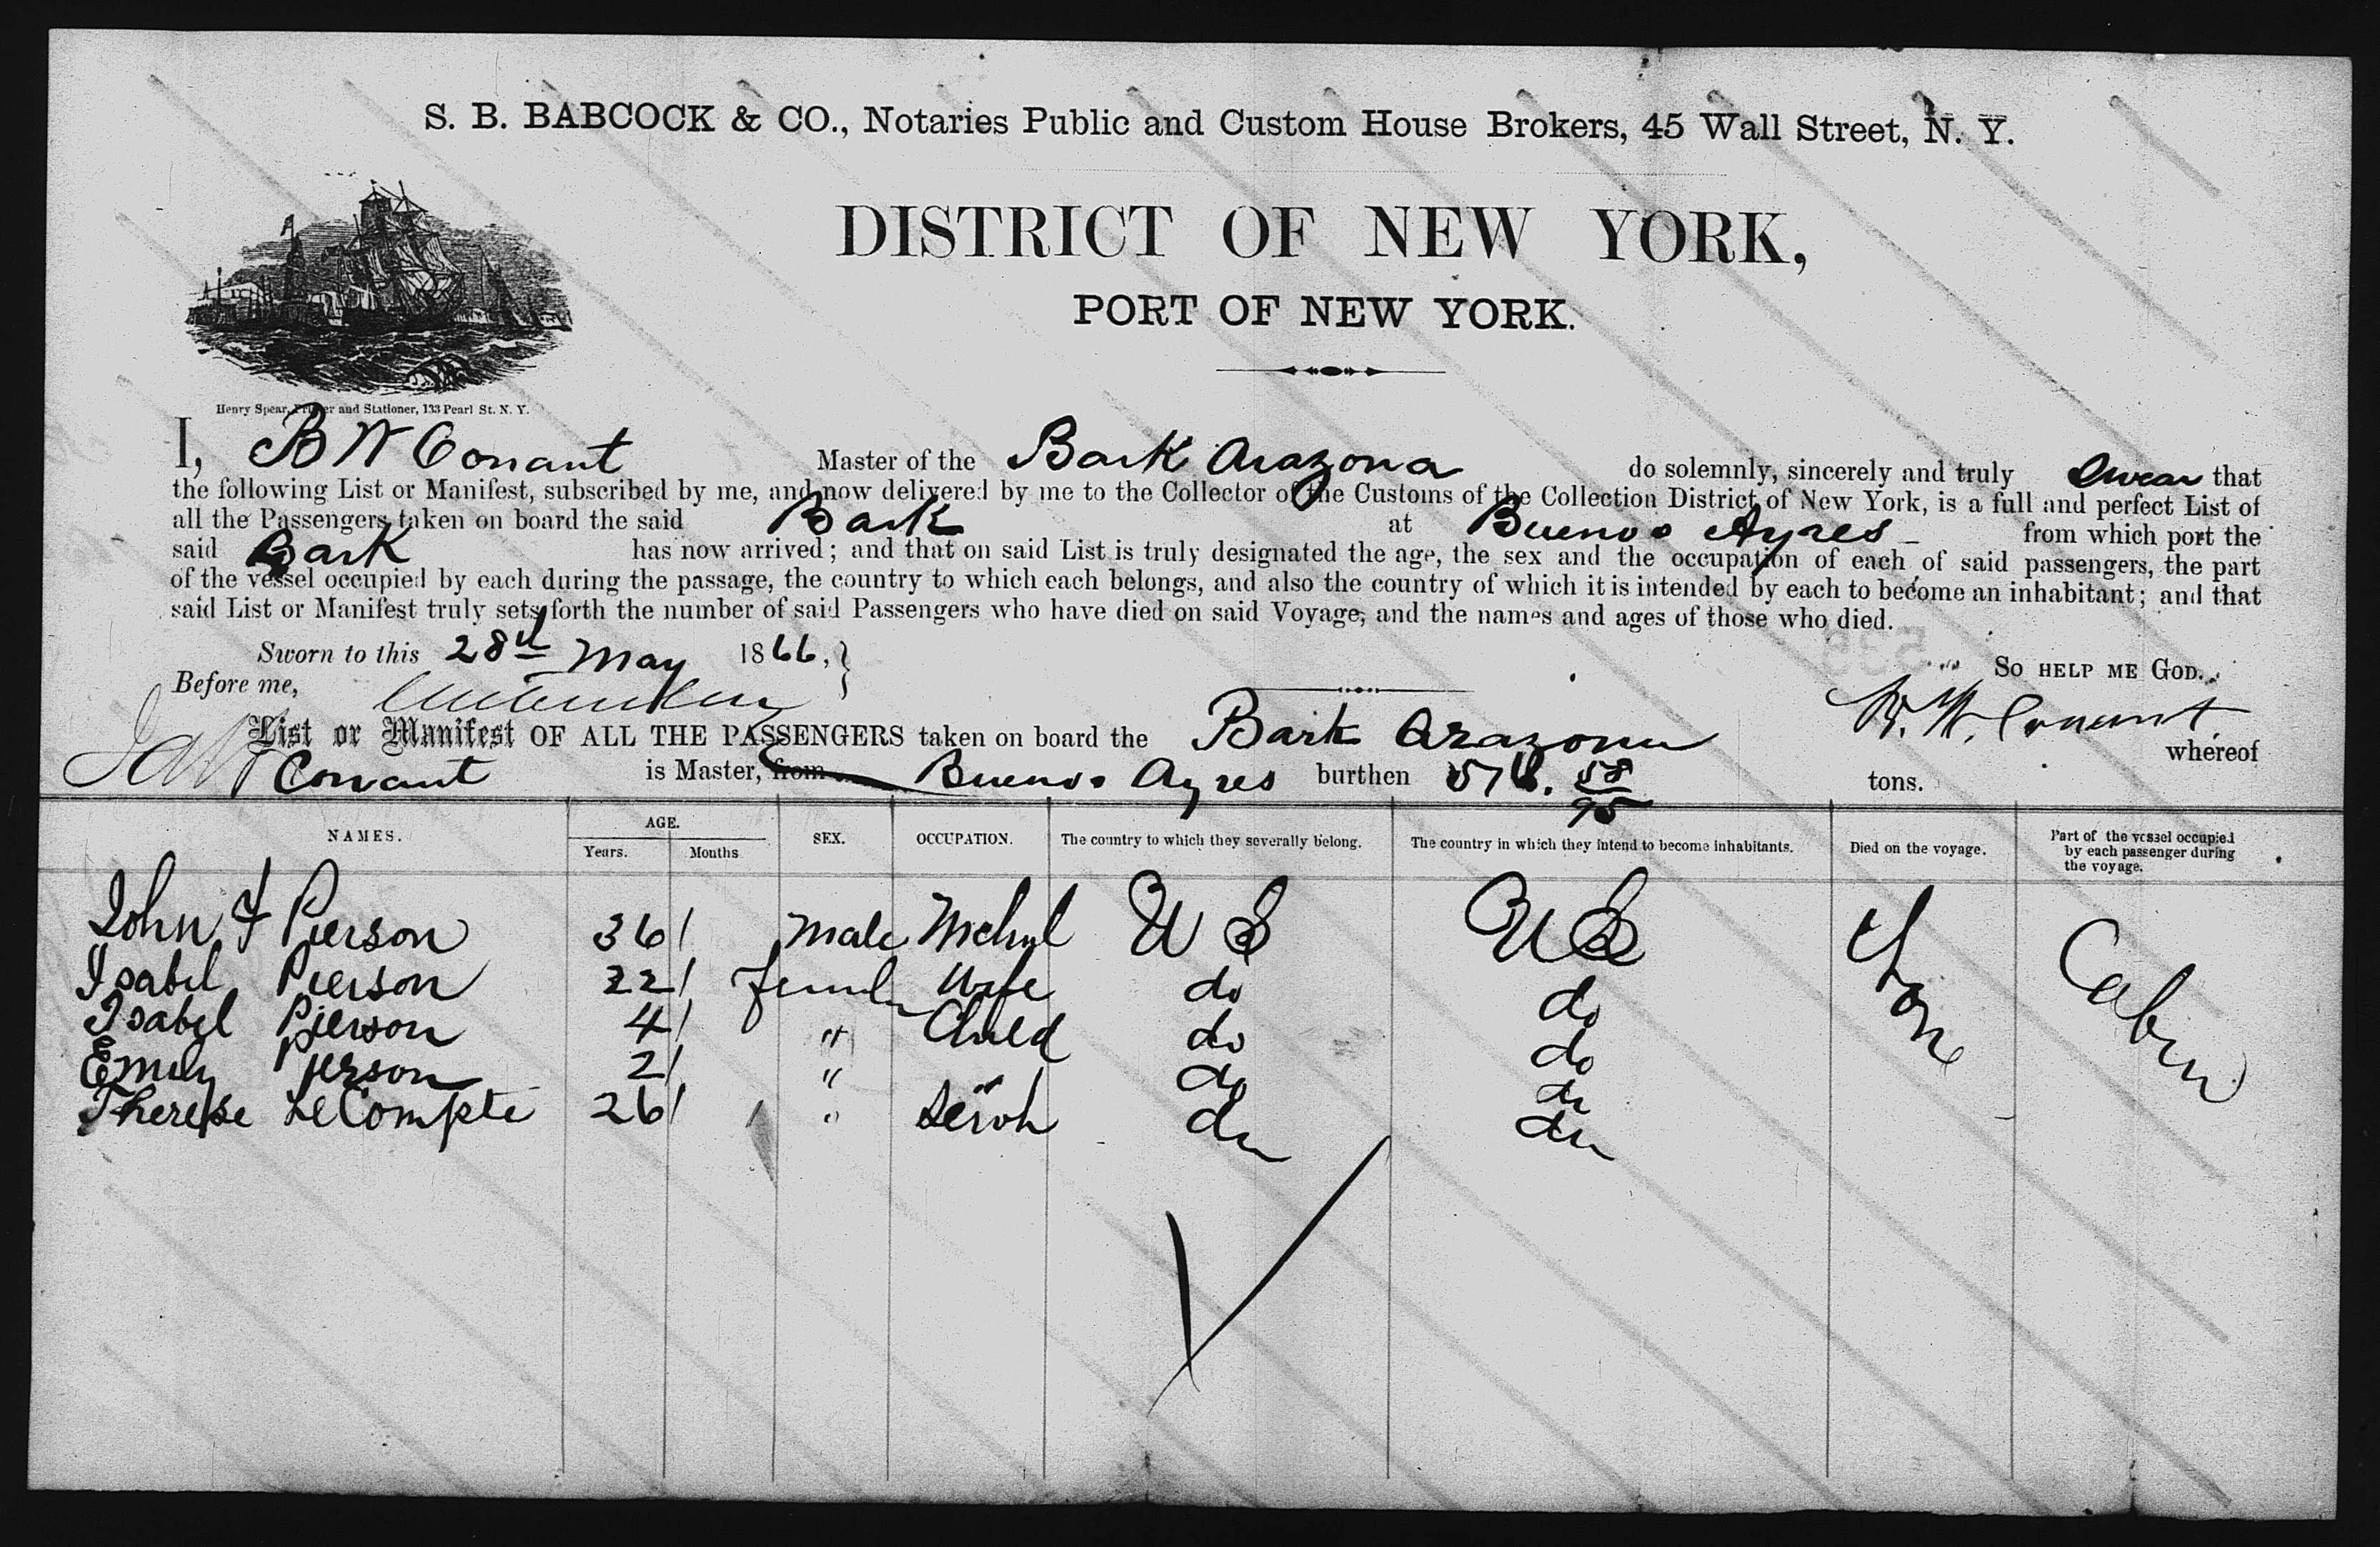 S. B. BABCOCK & CO., Notaries Public and Custom House Brokers, 45 Wall Street, N. Y.
DISTRICT OF NEW YORK,
PORT OF NEW YORK.
Henry Spear, Printer and Stationer, 133 Pearl St. N. Y.
I, B W Conant Master of the Bark Arazona do solemnly, sincerely and truly Swear that
the following List or Manifest, subscribed by me, and now delivered by me to the Collector of the Customs of the Collection District of New York, is a full and perfect List of
all the Passengers taken on board the said Bark at Buenos Ayres from which port the
said Bark has now arrived; and that on said List is truly designated the age, the sex and the occupation of each of said passengers, the part
of the vessel occupied by each during the passage, the country to which each belongs, and also the country of which it is intended by each to become an inhabitant; and that
said List or Manifest truly sets forth the number of said Passengers who have died on said Voyage, and the names and ages of those who died.
Sworn to this 28th May 1866, SO HELP ME GOD.
Before me, B. W. Conant
List or Manifest OF ALL THE PASSENGERS taken on board the Bark Arazona whereof
Conant is Master, from Buenos Ayres burthen 58/95 tons.
NAMES. AGE. SEX. OCCUPATION. The country to which they severally belong. The country in which they intend to become inhabitants. Died on the voyage. Part of the vessel occupied by each passenger during the voyage.
Years. Months
John F Pierson 36 Male U S U S None Cabin
Isabel Pierson 22 Female Wife do do
Isabel Pierson 4 " Child do do
Emily Pierson 2 " " do do
Therese LeCompte 26 " do do